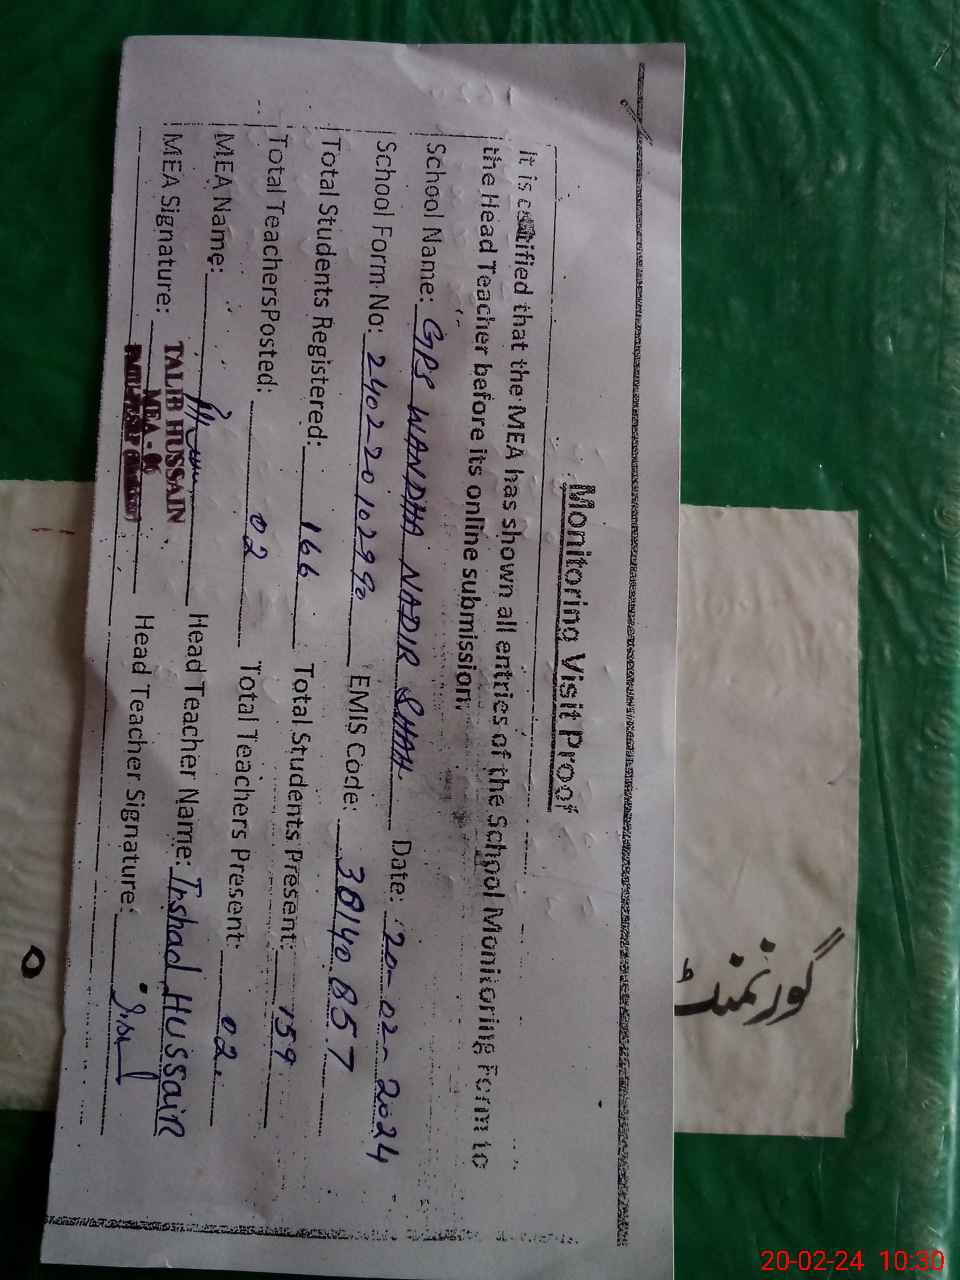 Monitoring Visit Proof
It is certified that the MEA has shown all entries of the School Monitoring Form to
the Head Teacher before its online submission.
School Name: GPS WANDHA NADIR SHAH Date: 20-02-2024
School Form No: 2402201029 EMIS Code: 38140857
Total Students Registered: 166 Total Students Present: 159
Total TeachersPosted: 02 Total Teachers Present: 02
MEA Name: Head Teacher Name: Irshad HUSSAIN
TALIB HUSSAIN
MEA Signature: MEA - 06 Head Teacher Signature:
گورنمنٹ
20-02-24 10:30